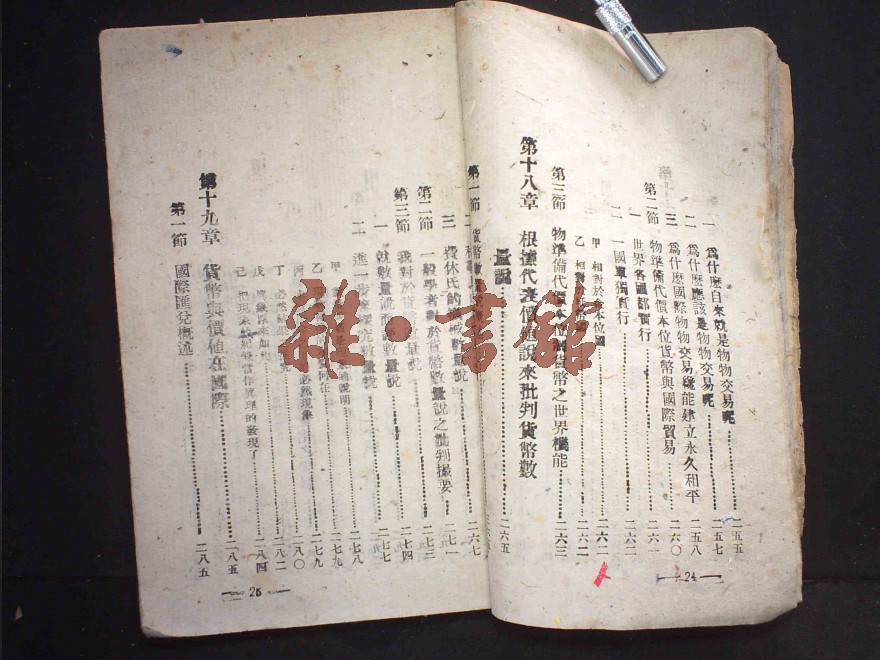 一 爲什麼自來就是物物交易呢……二五五
二 爲什麼應該是物物交易呢……二五七
三 爲什麼國際物物交易纔能建立永久和平……二五八
第二節 物準備代價本位貨幣與國際貿易……二六〇
一 世界各國都實行……二六一
二 一國單獨實行……二六二
甲 相對於金本位國……二六二
乙 相對於
第三節 物準備代價本位制貨幣之世界機能……二六三
第十八章 根據代表價値說來批判貨幣數
量說……二六五
—24—
第一節 貨幣數量……二六七
三 費休氏的機械數量說……二七一
第二節 一般學者對於貨幣數量說之批判撮要……二七三
第三節 我對於貨幣數量說……二七四
一 就數量說而論數量說……二七七
二 進一步來研究數量說……二七八
甲……的說明……二七九
乙……何在……二七九
丙……必然現象……二八〇
丁 必然……二八二
戊……二八四
己 把現末紀錄當作眞理的發現了
第十九章 貨幣與價値在國際……二八五
第一節 國際匯兌槪述……二八五
—25—
雜·書館